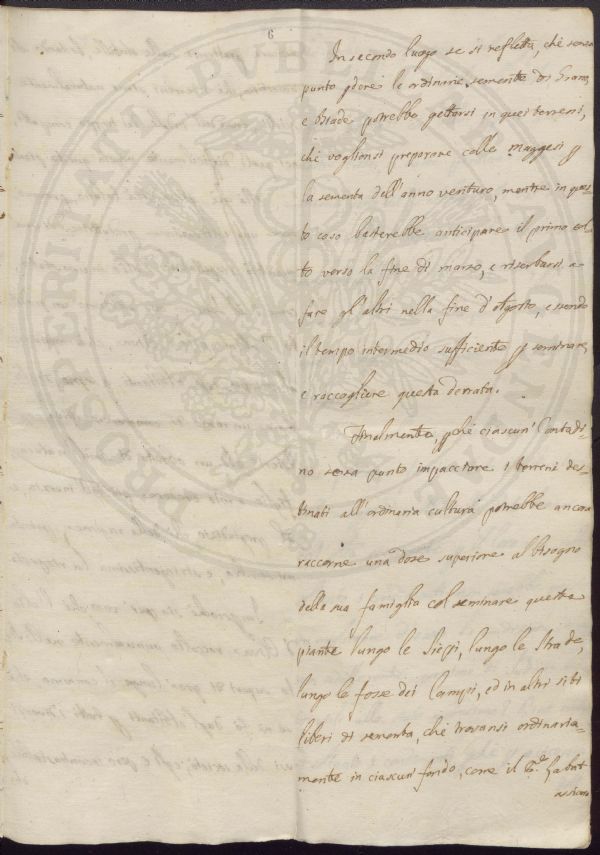 6
In secondo luogo se si refletta, che senza
punto pdere le ordinarie semente di Grani,
e Biade potrebbe gettarsi in quei terreni,
che voglionsi preparare colle maggesi p
la sementa dell'anno venturo, mentre in ques=
to caso basterebbe anticipare il primo col=
to verso la fine di marzo, e riserbarsi a
fare gl'altri nella fine d'Agosto, essendo
il tempo intermedio sufficiente p seminare,
e raccogliere questa derrata.
Finalmente, pche ciascun' Contadi=
no senza punto impacciare i terreni des=
tinati all'ordinaria cultura potrebbe ancora
raccorne una dose superiore al bisogno
della sua famiglia col seminare queste
piante lungo le Siepi, lungo le Strade,
lungo le fosse dei Campi, ed in altri siti
liberi di sementa, che trovansi ordinaria=
mente in ciascun' fondo, come il